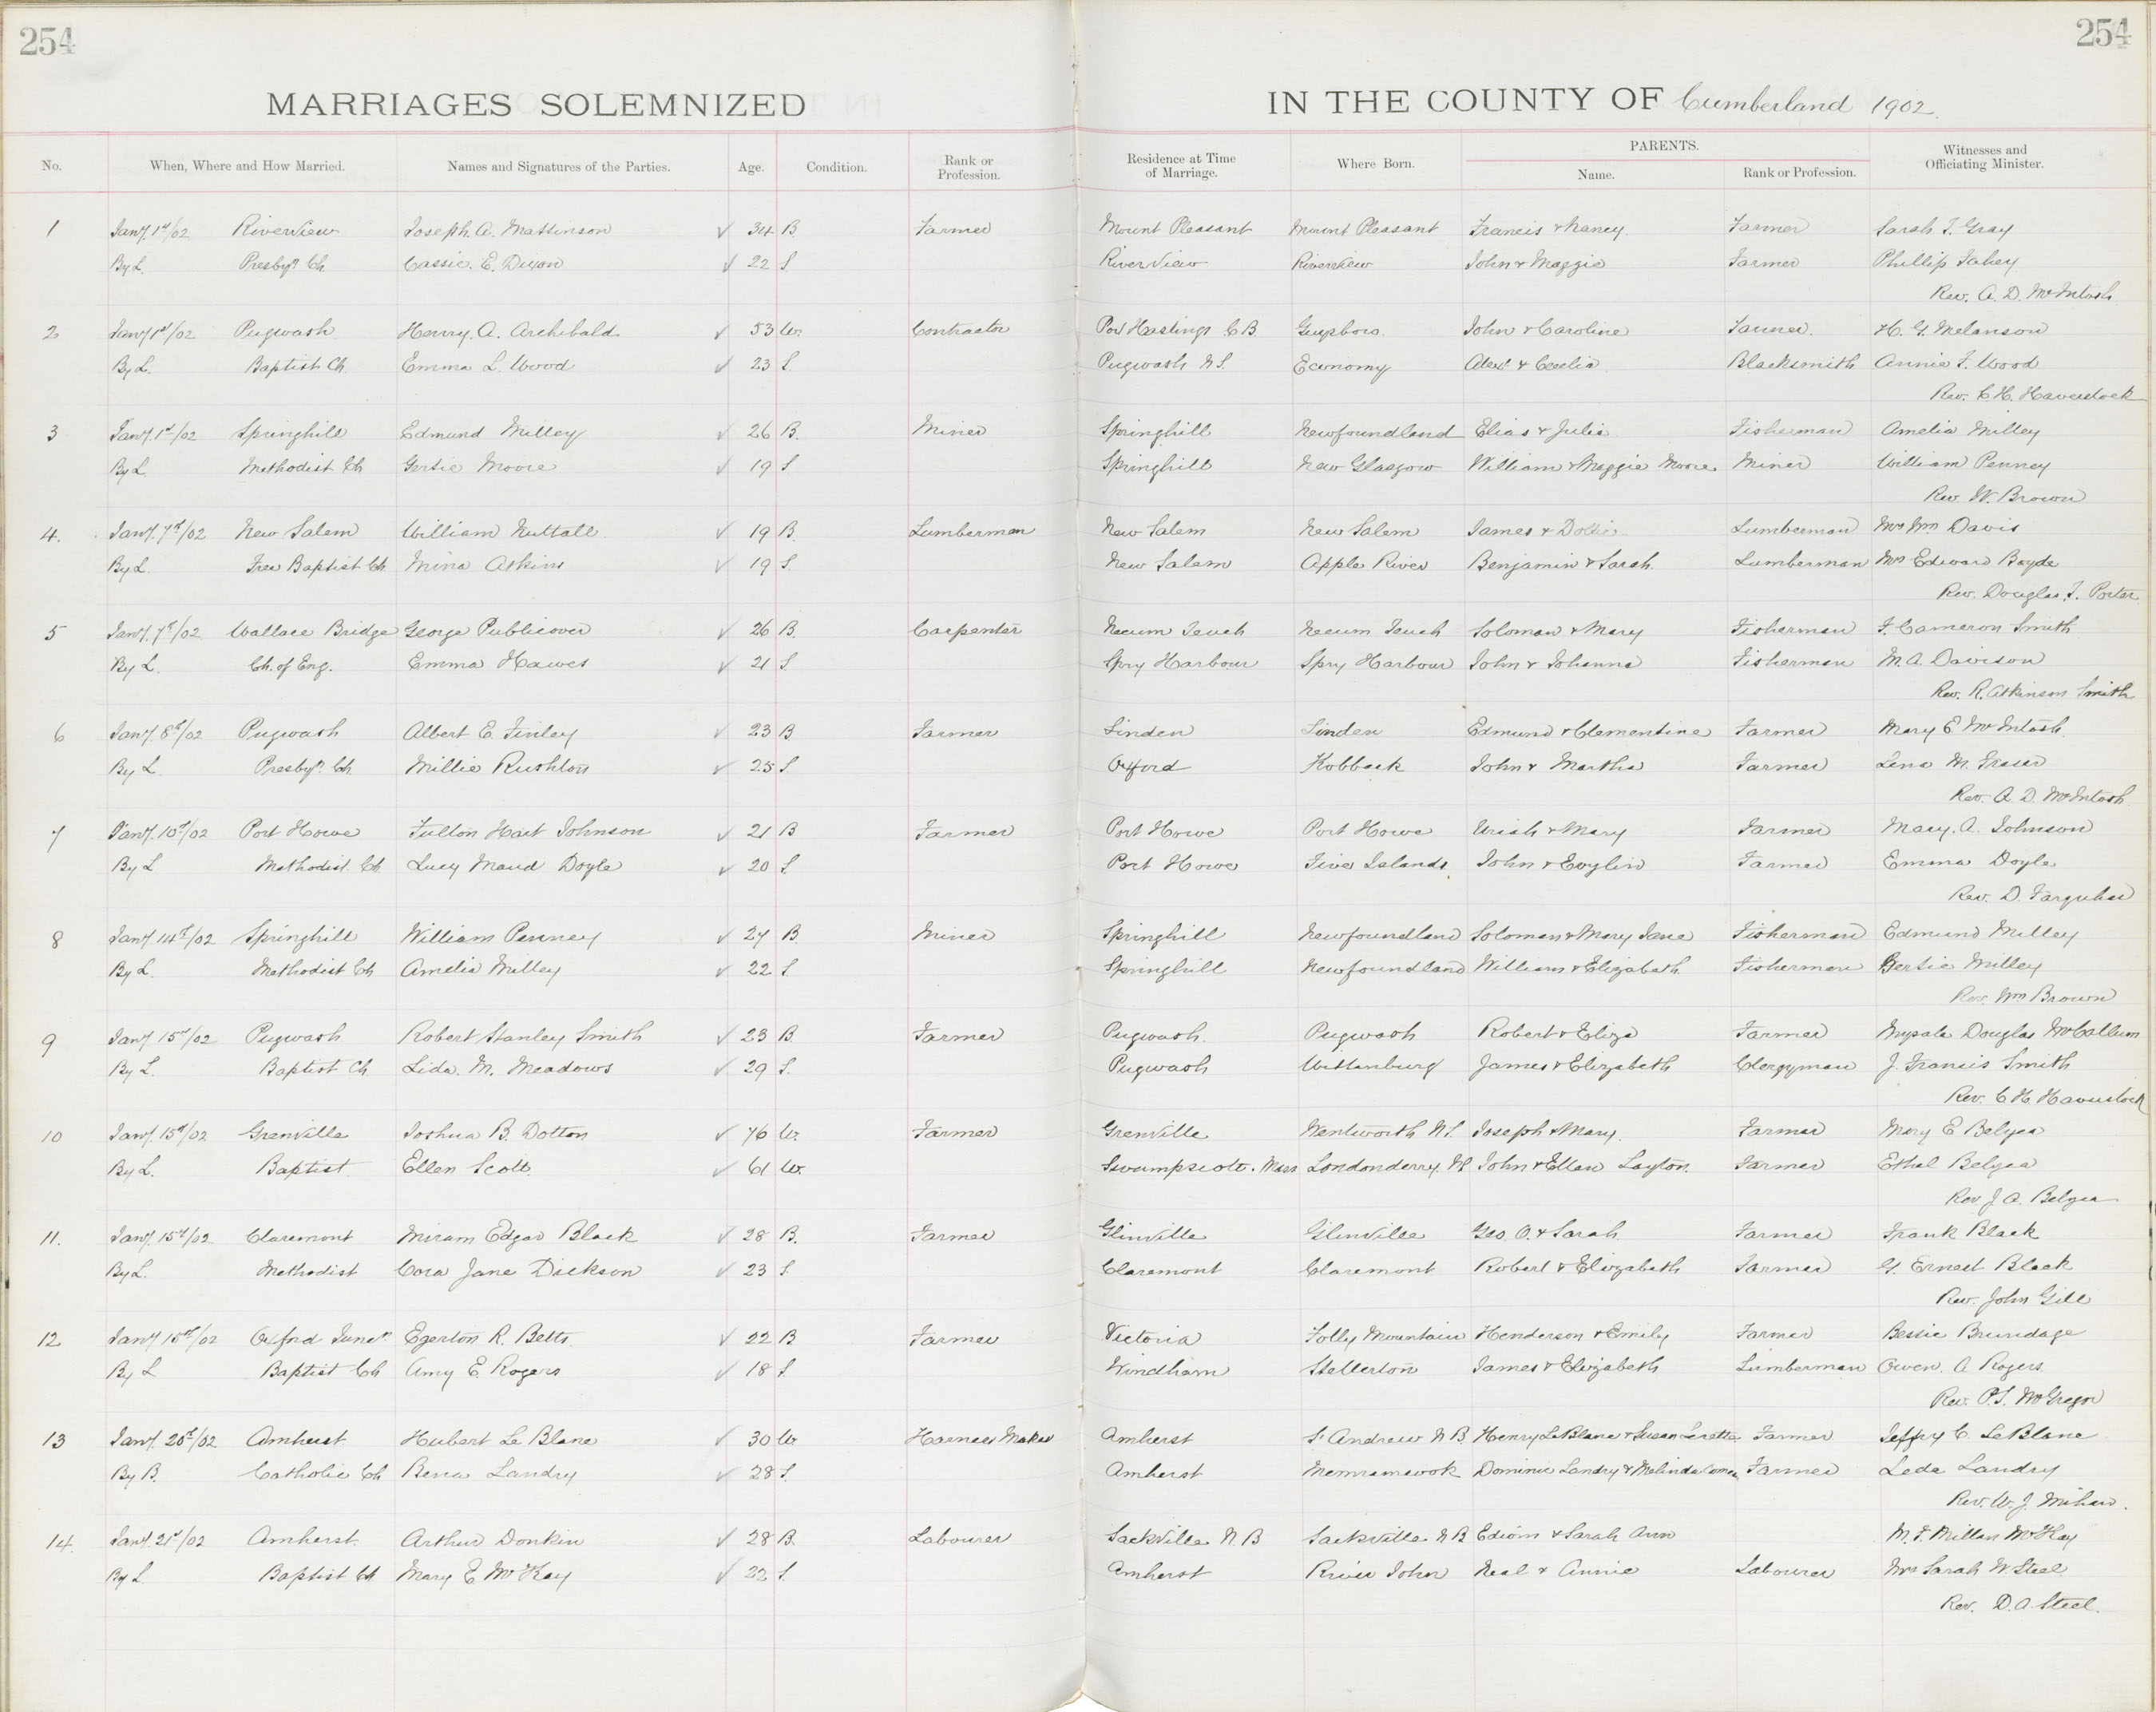 254
254
MARRIAGES SOLEMNIZED IN THE COUNTY OF Cumberland 1902.
No. When, Where and How Married. Names and Signatures of the Parties. Age. Condition. Rank or Profession. Residence at Time of Marriage. Where Born. PARENTS. Name. Rank or Profession. Witnesses and Officiating Minister.
1 Jany. 1st/02 Riverview Joseph. A. Mattinson ✓ 34 B. Farmer Mount Pleasant Mount Pleasant Francis & Nancy. Farmer Sarah F. Gray
By L. Presbyn Ch Cassie. E. Dixon ✓ 22 S River View Riverview John & Maggie Farmer Phillip Fahey
Rev. A. D. McIntosh
2 Jany 1st/02 Pugwash Henry. A. Archibald ✓ 53 W. Contractor Port Hastings C.B. Guysboro. John & Caroline H. G. Melanson
By L. Baptist Ch Emma L. Wood ✓ 23 S. Pugwash N.S. Economy Alexr & Cecelia Blacksmith Annie F. Wood
Rev. C. H. Haverstock
3 Jany. 1st/02 Springhill Edmund Milley ✓ 26 B. Miner Springhill Newfoundland Elias & Julia Fisherman Amelia Milley
By L. Methodist Ch Gertie Moore ✓ 19 S Springhill New Glasgow William & Maggie Moore. Miner William Penney
Rev. W. Brown
4. Jany. 7th/02 New Salem William Nuttall. ✓ 19 B. Lumberman New Salem New Salem James & Dollie Lumberman Mrs Wm Davis
By L. Free Baptist Ch. Mina Atkins ✓ 19 S. New Salem Apple River Benjamin & Sarah. Lumberman Mrs Edward Boyde
Rev. Douglas. F. Porter
5 Jany. 7th/02 Wallace Bridge George Publicover ✓ 26 B. Carpenter Necum Teuch Necum Teuch Soloman & Mary Fisherman F. Cameron Smith
By L. Ch. of Eng. Emma Hawes ✓ 21 S. Spry Harbour Spry Harbour John & Johanna Fisherman M. A. Davison
Rev. R. Atkinson Smith
6 Jany. 8th/02 Pugwash Albert E. Finley ✓ 23 B Farmer Linden Linden Edmund & Clementine Farmer Mary E McIntosh.
By L. Presbyn. Ch Millie Rushton ✓ 25 S. Oxford John & Martha Farmer Lena M. Fraser
Rev. A. D. McIntosh
7 Jany. 10th/02 Port Howe Fulton Hart Johnson ✓ 21 B Farmer Port Howe Port Howe Uriah & Mary Farmer Mary. A. Johnson
By L Methodist. Ch Lucy Maud Doyle ✓ 20 S. Port Howe Five Islands. John & Farmer Emma Doyle
Rev. D. Farquhar
8 Jany. 14th/02 Springhill William Penney ✓ 24 B Miner Springhill Newfoundland Soloman & Mary Jane Fisherman Edmund Milley
By L. Methodist Ch Amelia Milley ✓ 22 S Springhill Newfoundland William & Elizabeth Fisherman Gertie Milley
Rev. Wm Brown
9 Jany 15th/02 Pugwash Robert Stanley Smith ✓ 23 B. Farmer Pugwash. Pugwash Robert & Eliza Farmer Douglas McCallum
By L. Baptist Ch Lida. M. Meadows ✓ 29 S. Pugwash Wittenburg James & Elizabeth Clergyman J. Francis Smith
Rev. C H Haverstock
10 Jany. 15th/02 Grenville Joshua B. Dotton ✓ 76 W. Farmer Grenville Wentworth N.S. Joseph & Mary. Farmer Mary E Belyea
By L. Baptist Ellen Scott. ✓ 61 W. Swampscott. Mass Londonderry. NS John & Ellen Layton. Farmer Ethel Belyea
Rev J A. Belyea
11. Jany. 15th/02 Claremont Miram Edgar Black ✓ 28 B. Farmer Glinville Glinville Geo O. & Sarah Farmer Frank Black
By L. Methodist Cora Jane Dickson ✓ 23 S. Claremont Claremont Robert & Elizabeth Farmer G. Ernest Black
Rev. John Gill
12 Jany 15th/02 Oxford Juncn Egerton R. Betts ✓ 22 B Farmer Victoria Folly Mountain Henderson & Emily Farmer Bessie Brundage
By L Baptist Ch Amy E. Rogers ✓ 18 S Windham Stellerton James & Elizabeth Lumberman Owen. A Rogers
Rev. P.S. McGregor
13 Jany. 20th/02 Amherst Hubert Le Blanc ✓ 30 W Harness Maker Amherst St Andrew N B. Henry LeBlanc & Susan Farmer Jeffry C. LeBlanc
By B. Catholic Ch Bena Landry ✓ 28 S. Amherst Memramcook Dominic Landry & Melinda Farmer Leda Landry
Rev. W. J. Mihan.
14. Jany. 21st/02 Amherst. Arthur Donkin ✓ 28 B. Labourer Sackville N. B Sackville N B Ediom & Sarah Ann M. F. Millan McKay
By L Baptist Ch Mary E. McKay ✓ 22 S. Amherst River John Neal & Annie Labourer Mrs Sarah W. Steel
Rev. D. A. Steel.